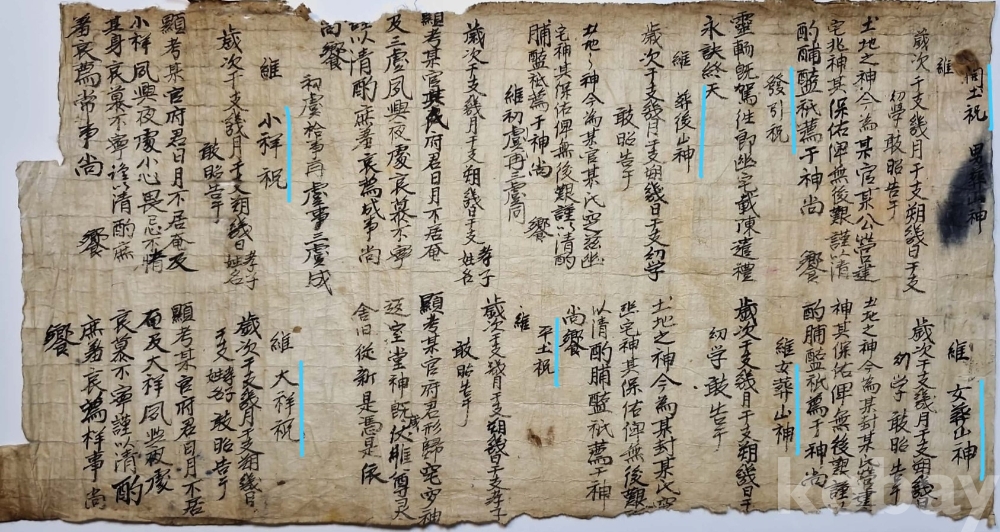 開土祝 男葬山神
維
歲次干支幾月干支朔幾日干支
幼學 敢昭告于
土地之神今為某官某公營建
宅兆神其保佑俾無後艱謹以清
酌脯醢祗薦于神尚 饗
發引祝
靈輀旣駕往即幽宅載陳遣禮
永訣終天
維 葬後山神
歲次干支幾月干支朔幾日干支幼學
敢昭告于
土地之神今為某官某氏窆玆幽
宅神其保佑俾無後艱謹以清酌
脯醢祗薦于神尚 饗
維初虞再三虞同
歲次干支幾月干支朔幾日干支 孝子姓名
敢昭告于
顯考某官某府君日月不居奄
及三虞夙興夜處哀慕不寧
以清酌庶羞哀薦成事尚
饗
初虞祫事再虞虞事三虞成
維 小祥祝
歲次干支幾月干支朔幾日 孝子姓名
敢昭告于
顯考某官府君日月不居奄及
小祥夙興夜處小心畏忌不惰
其身哀慕不寧謹以清酌庶
羞哀薦常事尚 饗
維 女葬山神
歲次干支幾月干支朔幾日
幼學 敢昭告于
土地之神今為某封某氏營建
神其保佑俾無後艱謹以
酌脯醢祗薦于神尚
維女葬山神
歲次干支幾月干支朔幾日干
幼學 敢告于
土地之神今為某封某氏窆
玆宅神其保佑俾無後艱
以清酌脯醢祗薦于神
尚饗
維 平土祝
歲次干支幾月干支朔幾日干支孝子
敢昭告于
顯考某官府君形歸窀穸神
返室堂神旣成伏惟尊灵
舍旧從新是憑是依
維 大祥祝
歲次干支幾月干支朔幾日
干支孝子姓名 敢昭告于
顯考某官府君日月不居
奄及大祥夙興夜處
哀慕不寧謹以清酌
庶羞哀薦祥事 尚
饗
kobay